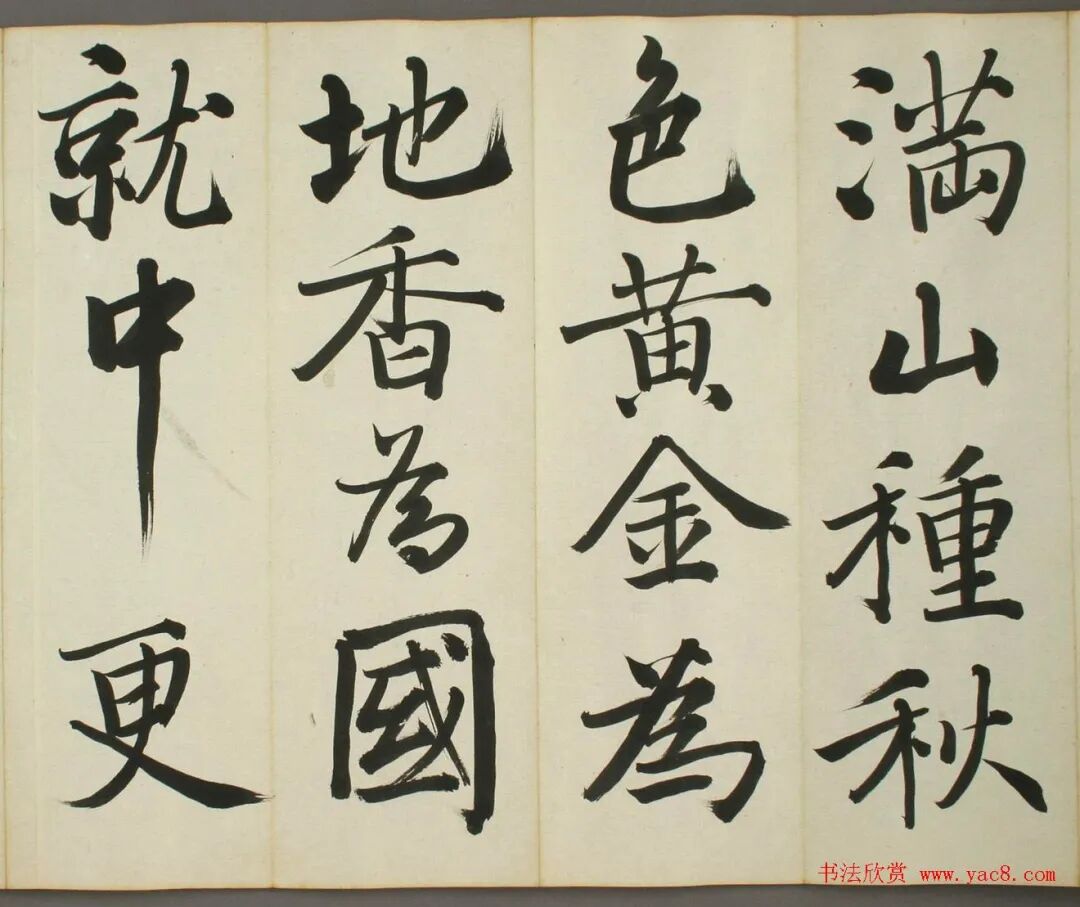 满山種秋
色黄金為
地香為國
就中更
书法欣赏 www.yac8.com